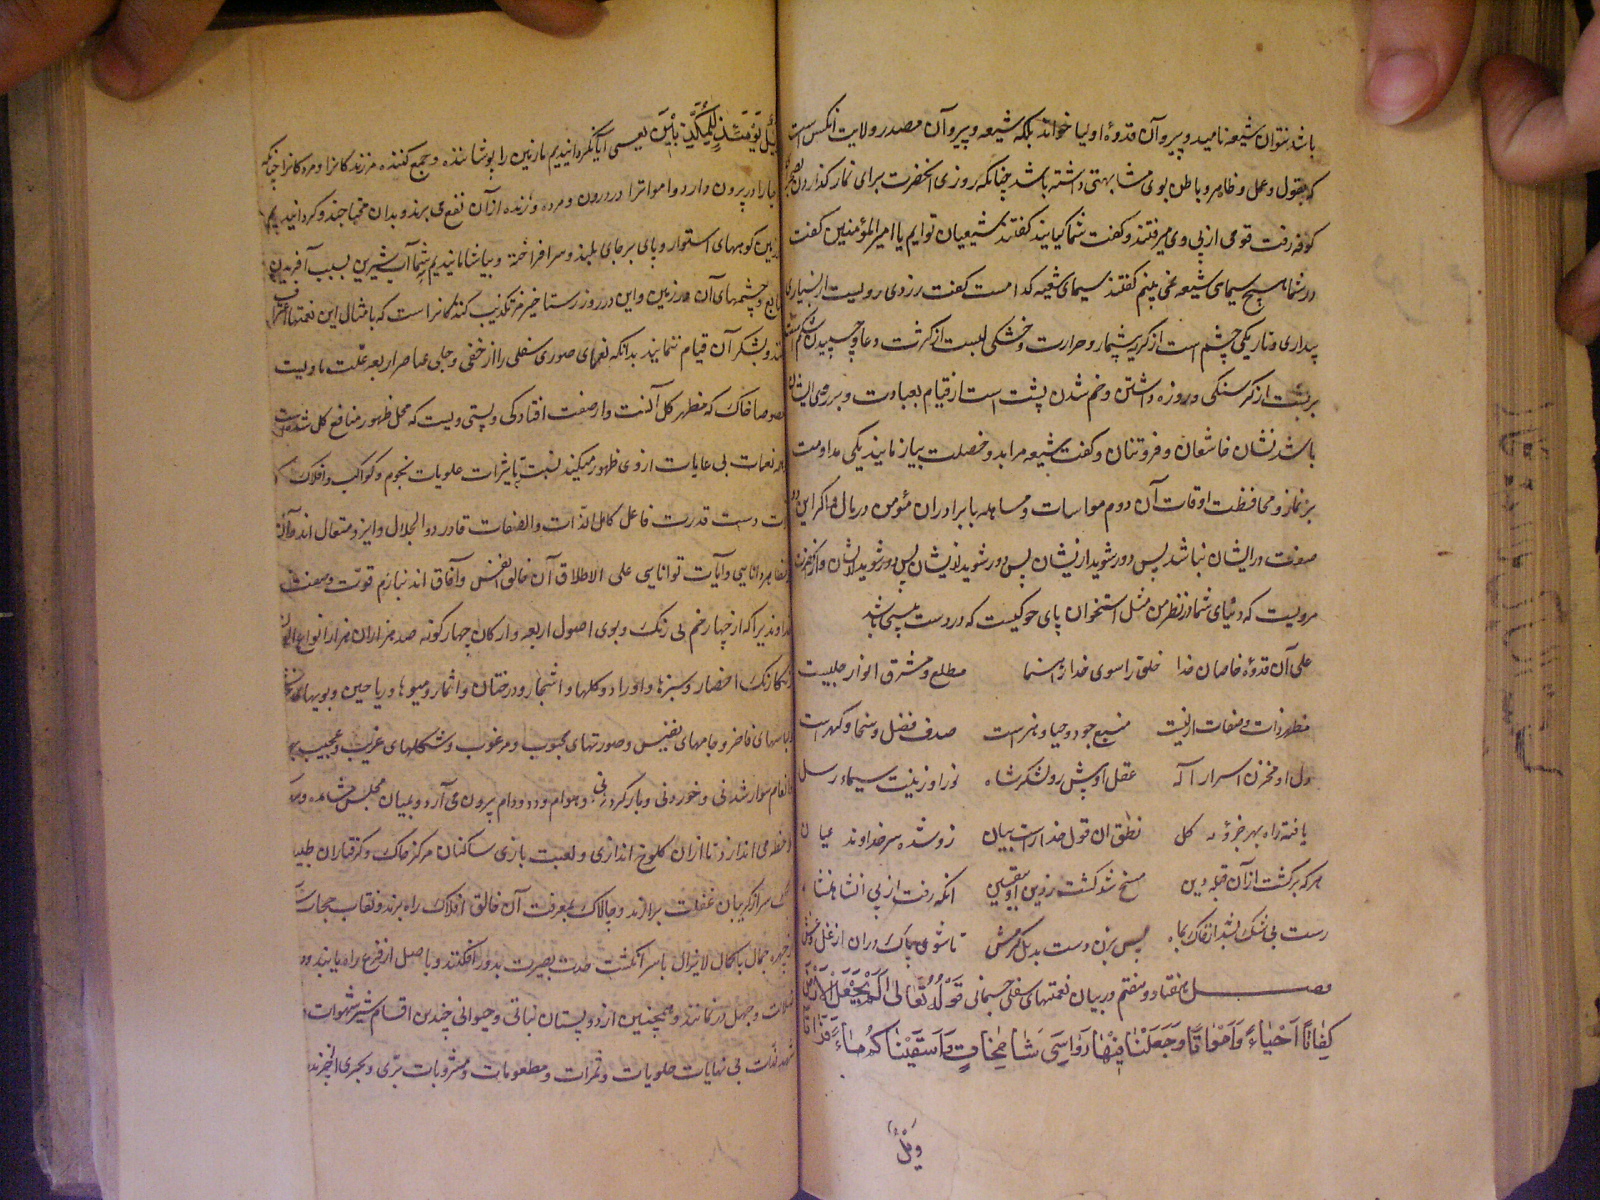 باشد نتوان شیعه نامید و پیروآن قدوهٔ اولیا خواند بلکه شیعه و پیروآن مصدر ولایت انکس است
که بقول و عمل و ظاهر و باطن بوی مشابهتی داشته باشد چنانکه روزی انحضرت برای نماز کذاردن
کوفه رفت قومی از پی وی میرفتند و کفت شما کیانید کفتند شیعیان توایم یا امیرالمؤمنین کفت
در شما هیچ سیمای شیعه نمی بینم کفتند سیمای شیعه کدامست کفت زردی رویست از بسیاری
بیداری و تاریکی چشم است از کریه بیشمار و حرارت و خشکی لبست از کثرت دعا و چسپیدن شکم
بر پشت از کرسنکی و روزه داشتن و خم شدن پشت است از قیام بعبادت و بر روی ایشان
باشد نشان خاشعان و فروتنان و کفت شیعه مرا بدو خصلت بیازمایند یکی مداومت
بر نماز و محافظت اوقات آن دوم مواسات و مساهله با برادران مؤمن در مال و اکر این دو
صفت در ایشان نباشد پس دور شوید ازیشان پس دور شوید ازیشان پس دور شوید ازیشان و از انحضرت
مرویست که دنیای شما در نظر من مثل استخوان پای خوکیست که در دست پیسی باشد
علی آن قدوهٔ خاصان خدا خلق را سوی خدا راهنما مطلع و مشرق انوار جلیست
مظهر ذات و صفات ازلیست منبع جود و حیا و هنرست صدف فضل و سخا و کهرست
دل او مخزن اسرار اله عقل او پیش رو لشکر شاه نور او زینت سیماء رسل
یافته راه بهر جزؤ و کل نطق ان قول خدا راست بیان زو شده سر خداوند عیان
هر که برکشت از آن قبله دین مسخ شد کشت ز دین او بیقین انکه رفت از پی انشاهنشاه
رست بی شک بشد از خاک بماه پس بزن دست بدیل کرمش تا شوی پاک دران از غل و غش
فصل هفتاد و هفتم در بیان نعمتهای سفلی جسمانی قَوْلُهُ تَعَالیٰ اَلَمْ نَجْعَلِ الْاَرْضَ
کِفَاتًا اَحْیَاءً وَاَمْوَاتًا وَجَعَلْنَا فِیْهَا رَوَاسِیَ شَامِخَاتٍ وَاَسْقَیْنَاکُمْ مَاءً فُرَاتًا
وَیْلٌ
وَیْلٌ یَوْمَئِذٍ لِلْمُکَذِّبِیْنَ یعنی آیا نکردانیدیم ما زمین را پوشاننده و جمع کننده مر زندکانرا و مردکانرا چنانکه
احیا را در بیرون دارد و امواترا در درون و مرده و زنده از آن نفع می برند و بدان محتاجند و کردانیدیم
در زمین کوههای استوار و پای بر جای بلند و سر افراخته و بیاشامانیدیم شما آب شیرین بسبب آفریدن
منابع و چشمهای آن در زمین و این در روز رستاخیز مر تکذیب کنندکانرا است که بامثال این نعمتها اعتراف
نکنند و بشکر آن قیام ننمایند بدانکه نعمای صوری سفلی را از خفی و جلی عناصر اربعه علت مادیست
خصوصا خاک که مظهر کل آنست و از صفت افتادکی و پستی ویست که محل ظهور منافع کل شده است
نعمات بی غایات از وی ظهور میکند لیکن بتاثیرات علویات نجوم و کواکب و افلاک
دست قدرت فاعل کامل الذات والصفات قادر ذو الجلال و ایزد متعال اند و آن
مظاهر دانایی و آیات توانایی علی الاطلاق آن خالق انفس و آفاق اند بنازم قوت و صنعت
خداوندیرا که از چهار خم بی رنک و بوی اصول اربعه و ارکان چهارکونه صد هزاران هزار انواع الوان
رنکارنک اخضار و سبزها و اوراد و کلها و اشجار و درختان و اثمار و میوها و ریاحین و بویها
لباسهای فاخر و جامهای نفیس و صورتهای محبوب و مرغوب و شکلهای غریب و عجیب
و انعام سوار شدنی و خوردنی و بار کردنی و هوام و دد و دام بیرون می آرد و بمیان مجلس مشاهده
می اندازد تا ازان کلوخ اندازی و لعبت بازی ساکنان مرکز خاک و کرفتاران
سر از کریبان غفلت برآرند و چالاک بمعرفت آن خالق افلاک راه برند و نقاب حجاب
از چهره جمال باکمال لایزال باسر انکشت حدت بصیرت بدور افکنند و باصل از فرع راه یابند
ضلالت و جهل در نمانند و همچنین از دو پستان نباتی و حیوانی چندین اقسام شیر شهوات
لذات بی نهایات حلویات و ثمرات و مطعومات و مشروبات بری و بحری